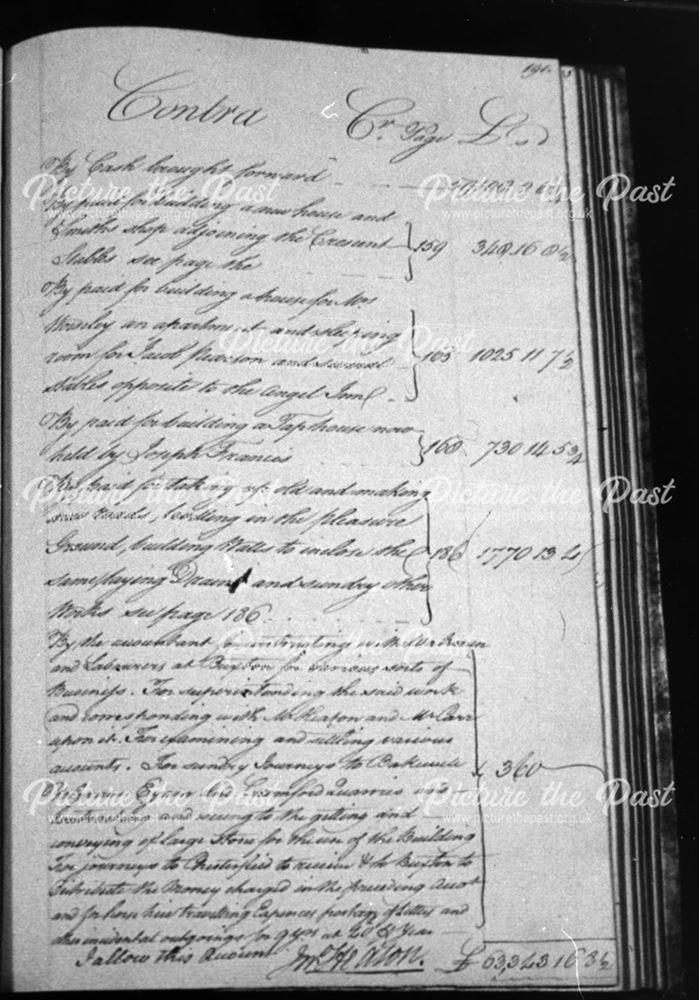 191.
Contra Cr. Page L s d
By Cash brought forward
By paid for building a new house and
Smiths shop adjoining the Crescent
Stables see page the 159 348,16 8½
By paid for building a house for Mrs
an apartment and sleeping
room for Jacob Pearson and several 165 1025 11 7½
stables opposite to the Angel Inn
By paid for building a Taphouse now
held by Joseph Francis 168 730 14 5¾
By paid for taking up old and making
new roads, levelling in the pleasure
Ground, building Walls to inclose the 186 1770 13 4
same laying Drains and sundry other
Works see page 186
By the accountant for contracting with Workmen
and Labourers at Buxton for various sorts of
Business. For superintending the said work
and corresponding with Mr Heaton and Mr Carr
upon it. For examening and settling various
accounts. For sundry Journeys to Bakewell 360
Cromford Quarries and
and seeing to the getting and
conveying of large Stone for the use of the Building
For journeys to Chesterfield to receive & to Buxton to
distribute the Money charged in the preceding Acct
and for horse hire travelling Expences postage of Letters and
other incidental outgoings for 9 yrs at 40 £ Year
I allow this Account Jno. Heaton. £ 63,343,16 3½
Picture the Past
www.picturethepast.org.uk